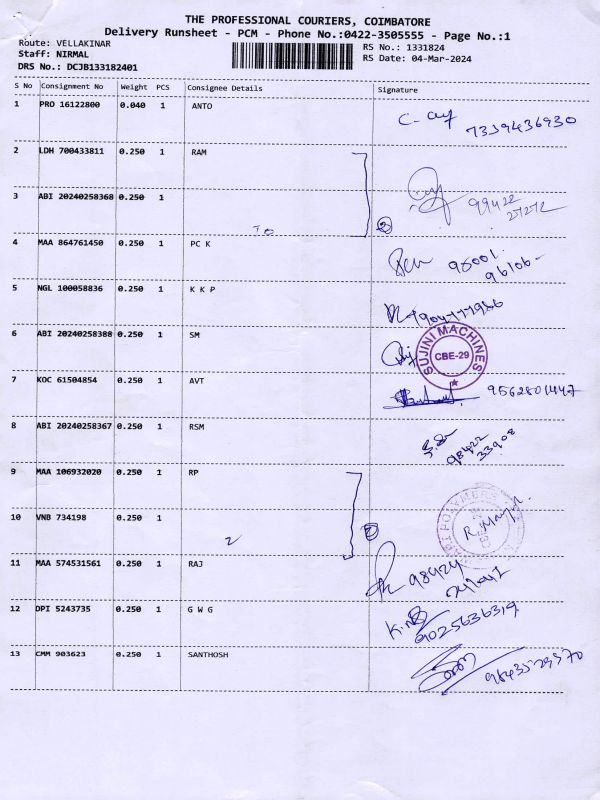 THE PROFESSIONAL COURIERS, COIMBATORE
Delivery Runsheet - PCM - Phone No.:0422-3505555 - Page No.:1
Route: VELLAKINAR
RS No.: 1331824
Staff: NIRMAL
RS Date: 04-Mar-2024
DRS No.: DCJB133182401
S No Consignment No Weight PCS Consignee Details Signature
1 PRO 16122800 0.040 1 ANTO
7339436930
2 LDH 700433811 0.250 1 RAM
3 ABI 20240258368 0.250 1
99422
27272
TO
4 MAA 864761450 0.250 1 PC K
98001
96106
5 NGL 100058836 0.250 1 K K P
6 ABI 20240258388 0.250 1 SM
SUJINI MACHINES
CBE-29
7 KOC 61504854 0.250 1 AVT
9562801447
8 ABI 20240258367 0.250 1 RSM
98422
33908
9 MAA 106932020 0.250 1 RP
10 VNB 734198 0.250 1
2
11 MAA 574531561 0.250 1 RAJ
98424
12 DPI 5243735 0.250 1 G W G
9025636319
13 CMM 903623 0.250 1 SANTHOSH